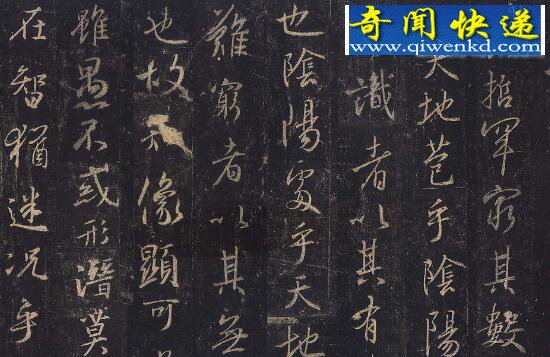 奇闻快递
www.qiwenkd.com
哲罕窮其數
天地苞乎陰陽
識者以其有
也陰陽處乎天地
難窮者以其無
也故像顯可
雖愚不惑形潛莫
在智猶迷況乎